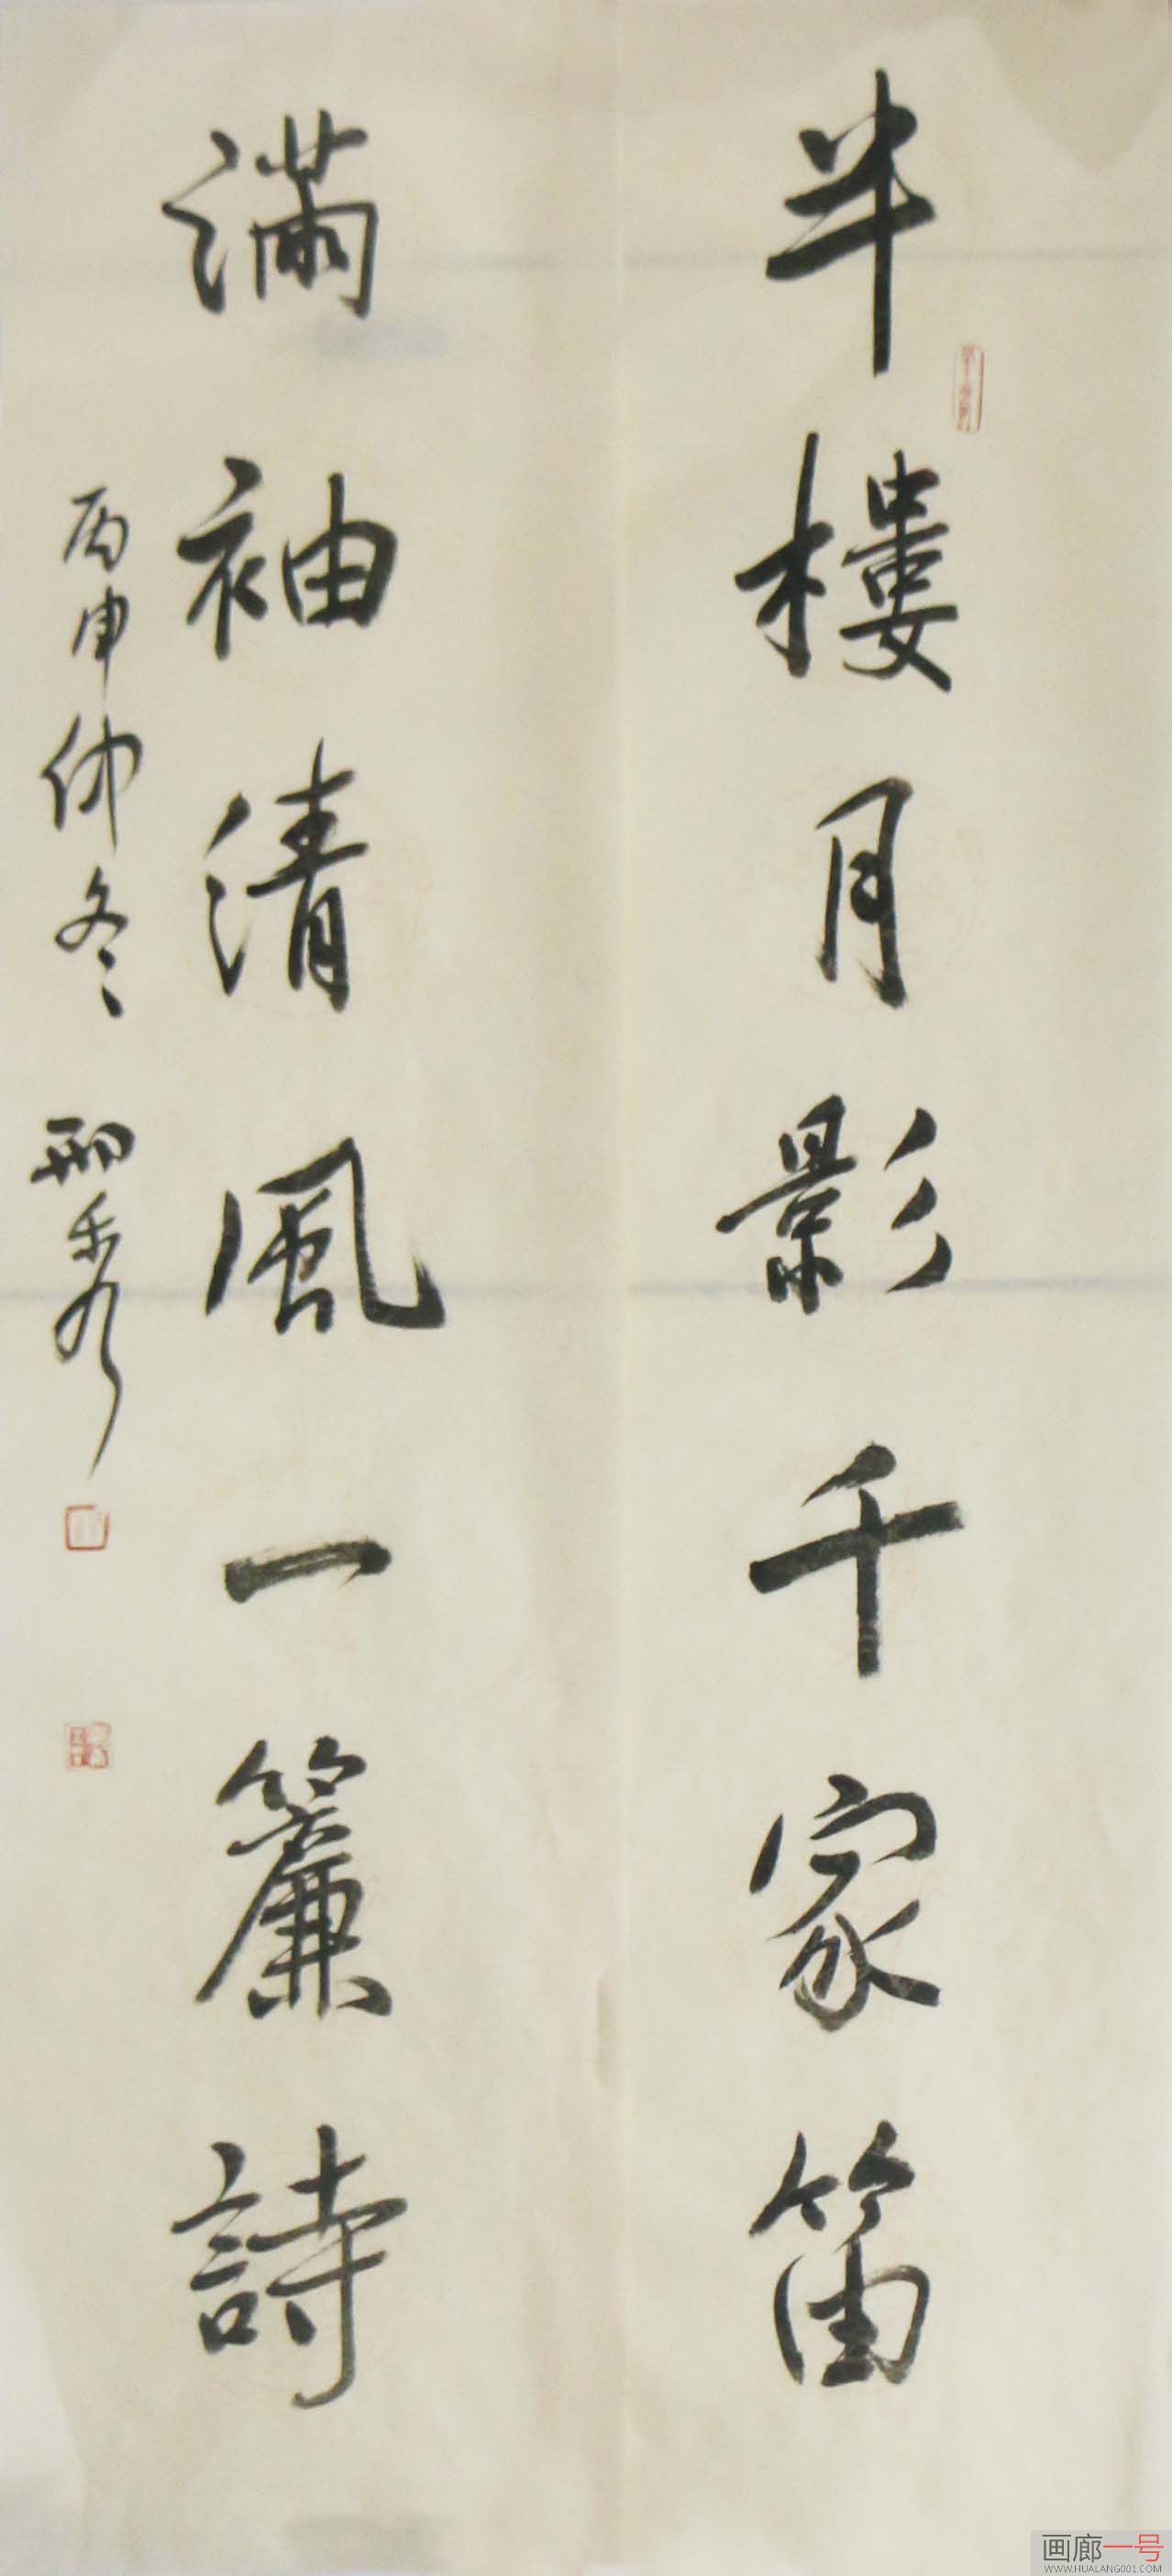 半樓月影千家笛
滿袖清風一簾詩
丙申仲冬
画廊一号
WWW.HUALANG001.COM